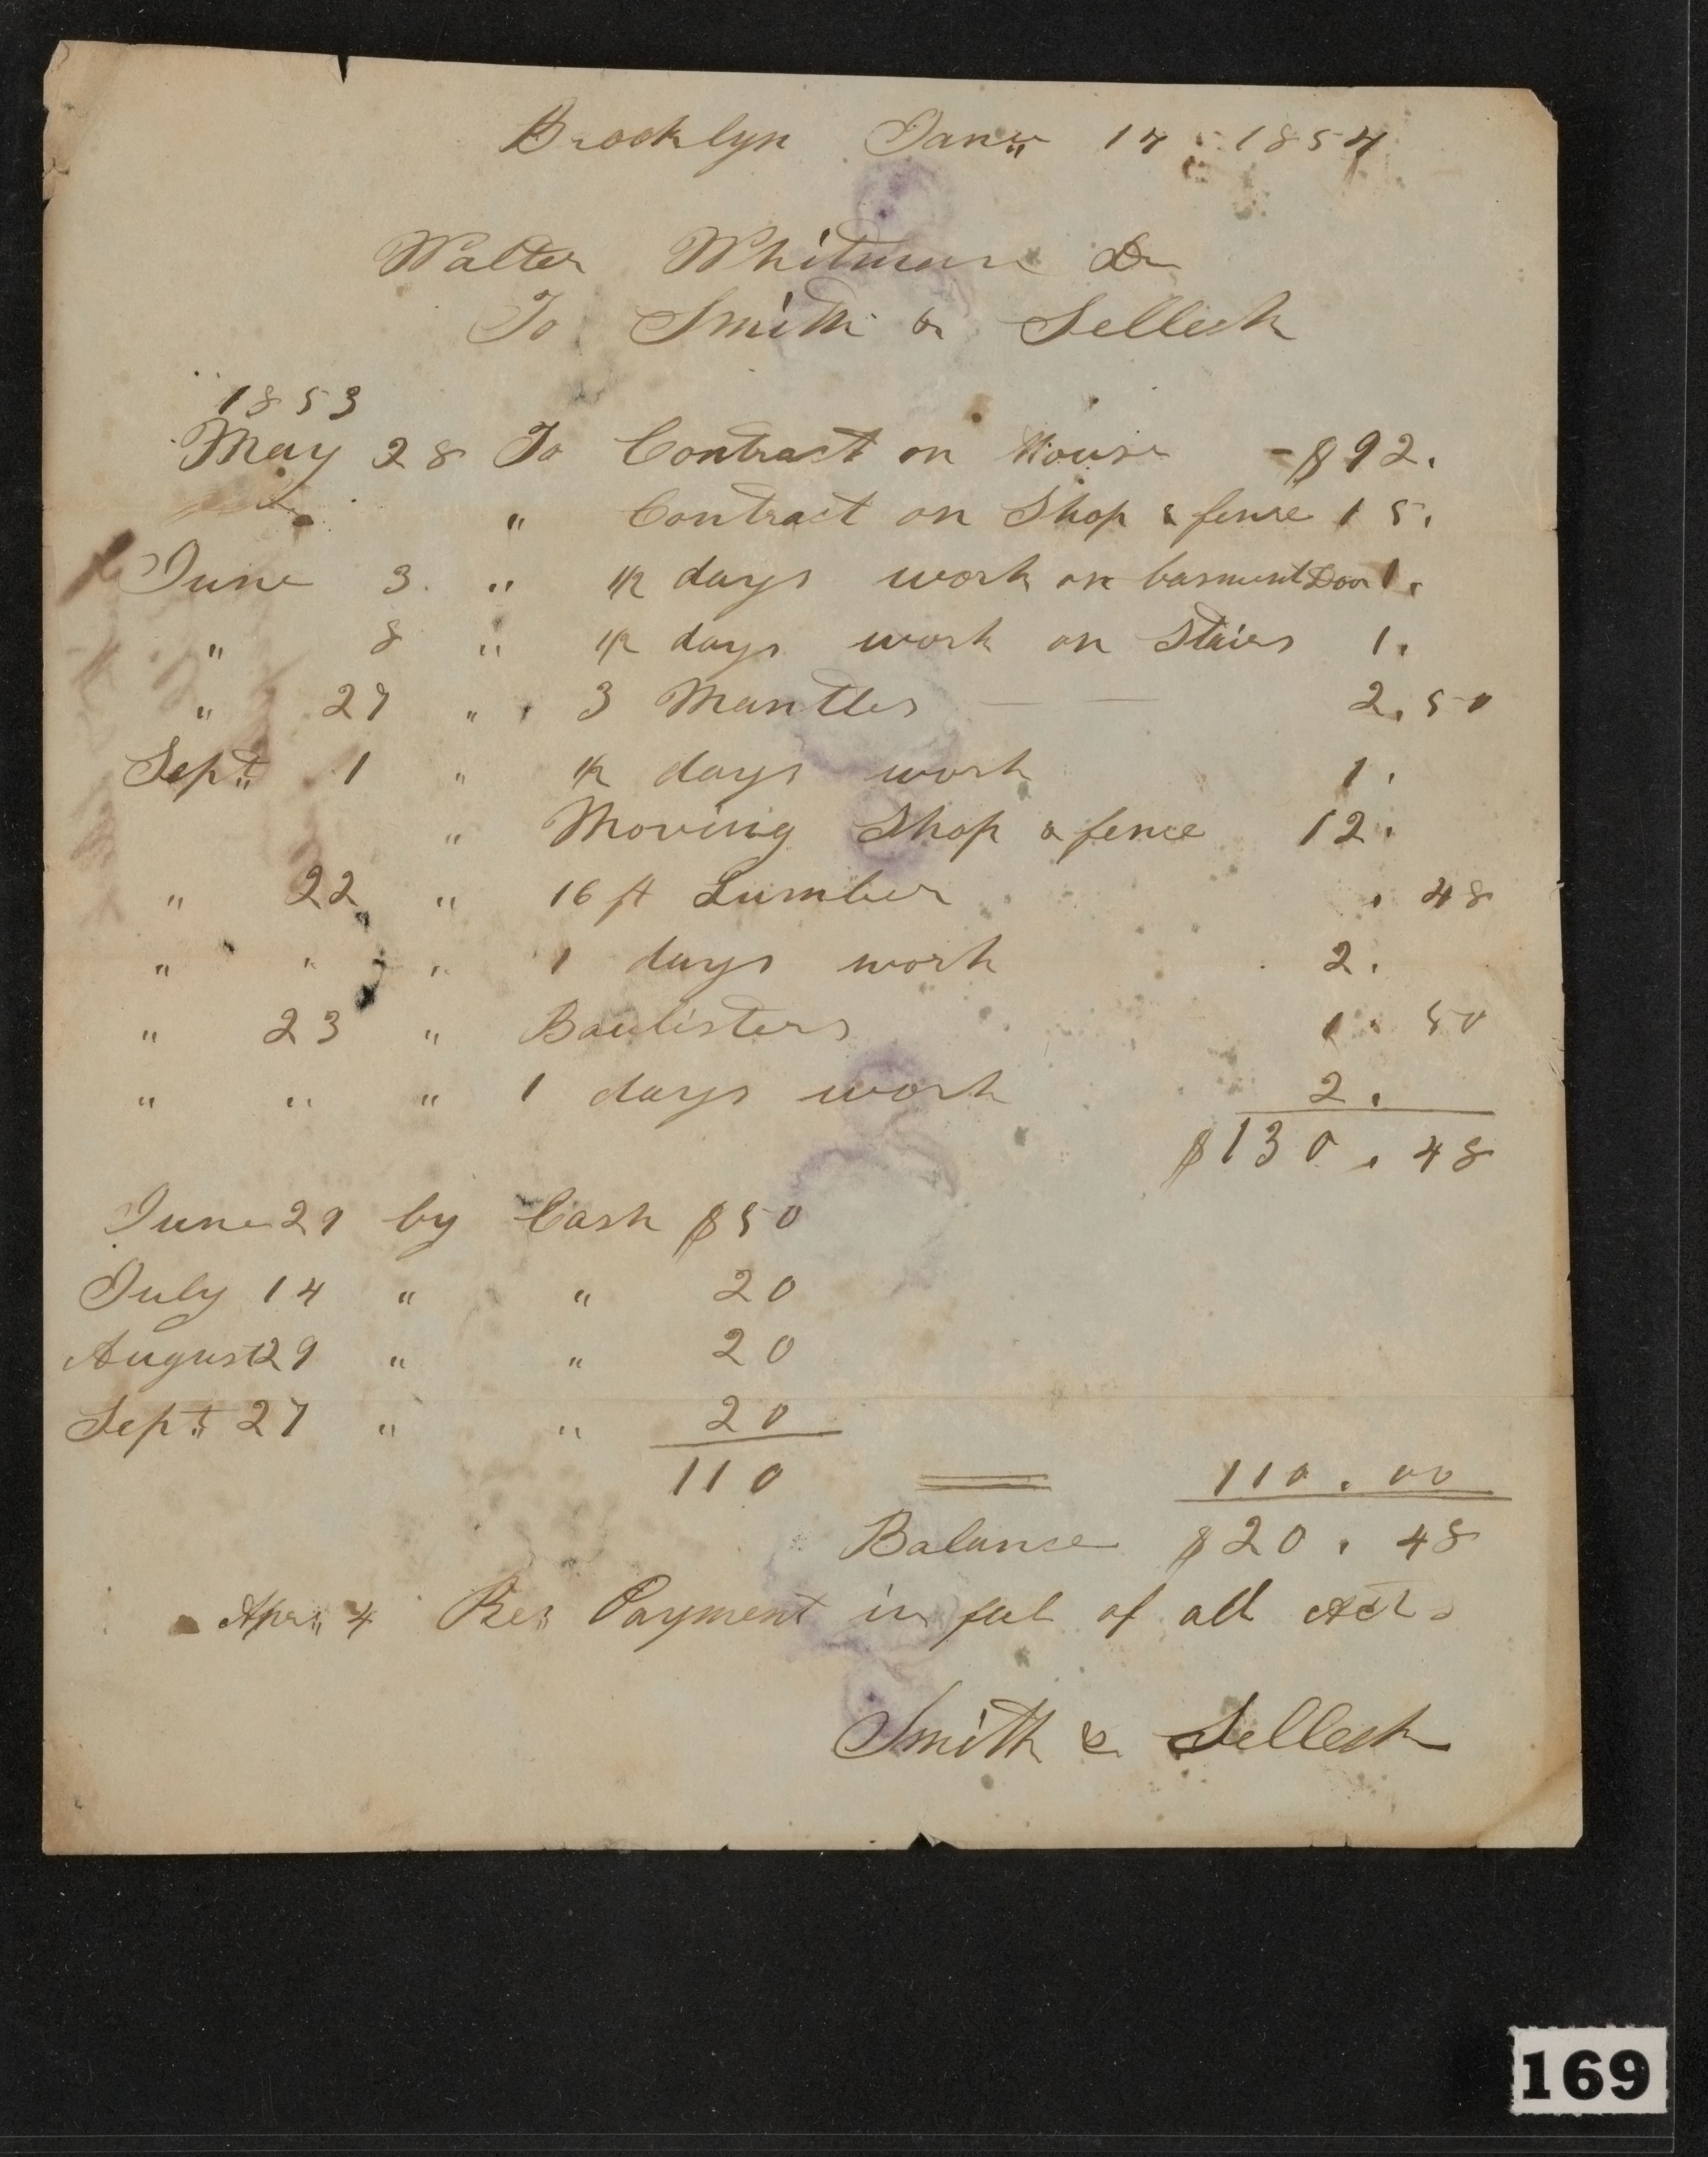 Brooklyn Jany 14 1854
Walter Whitman Dr
To Smith & Selleck
1853
May 28 To Contract on House - $92.
" Contract on Shop & fence 15.
June 3. " 1/2 days work on basment Door 1.
" 8 " 1/2 days work on Stairs 1.
" 27 " 3 Mantles — — 2.50
Sept 1 " 1/2 days work 1.
" Moving Shop & fence 12.
" 22 " 16 ft Lumber .48
" " " 1 days work 2.
" 23 " Baulisters 1.50
" " " 1 days work 2.
$130.48
June 29 by Cash $50
July 14 " " 20
August 29 " " 20
Sept 27 " " 20
110 = 110.00
Balance $20.48
Apr 4 Rec Payment in ful of all Acts
Smith & Selleck
169